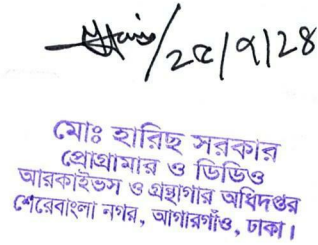 /২৫/৭/২৪
মোঃ হারিছ সরকার
প্রোগ্রামার ও ডিডিও
আরকাইভস ও গ্রন্থাগার অধিদপ্তর
শেরেবাংলা নগর, আগারগাঁও, ঢাকা।